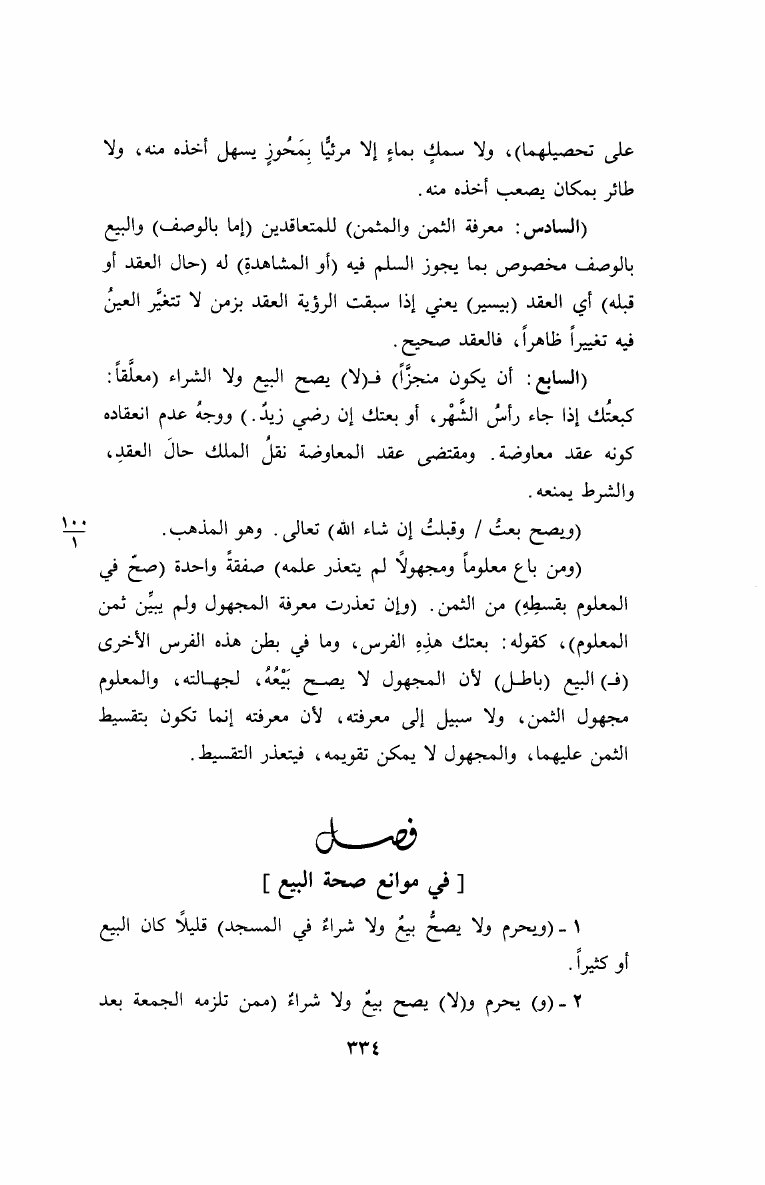 على تحصيلهما)، ولا سمكٍ بماءٍ إلا مرئيًّا بِمَحُوزٍ يسهل أخذه منه، ولا
طائر بمكان يصعب أخذه منه.
(السادس: معرفة الثمن والمثمن) للمتعاقدين (إما بالوصف) والبيع
بالوصف مخصوص بما يجوز السلم فيه (أو المشاهدةِ) له (حال العقد أو
قبله) أي العقد (بيسير) يعني إذا سبقت الرؤية العقد بزمن لا تتغيَّر العينُ
فيه تغييراً ظاهراً، فالعقد صحيح.
(السابع: أن يكون منجزًّا) فـ(لا) يصح البيع ولا الشراء (معلَّقاً:
كبعتُك إذا جاء رأسُ الشَّهْر، أو بعتك إن رضي زيدٌ.) ووجهُ عدم انعقاده
كونه عقد معاوضة. ومقتضى عقد المعاوضة نقلُ الملك حالَ العقدِ،
والشرط يمنعه.
(ويصح بعتُ / وقبلتُ إن شاء الله) تعالى. وهو المذهب. ١٠٠/١
(ومن باع معلوماً ومجهولًا لم يتعذر علمه) صفقةً واحدة (صحّ في
المعلوم بقسطِهِ) من الثمن. (وإن تعذرت معرفة المجهول ولم يبيِّن ثمن
المعلوم)، كقوله: بعتك هذِهِ الفرس، وما في بطن هذه الفرس الأخرى
(فـ) البيع (باطل) لأن المجهول لا يصح بَيْعُهُ، لجهالته، والمعلوم
مجهول الثمن، ولا سبيل إلى معرفته، لأن معرفته إنما تكون بتقسيط
الثمن عليهما، والمجهول لا يمكن تقويمه، فيتعذر التقسيط.
فصل
[في موانع صحة البيع]
١ - (ويحرم ولا يصحُّ بيعٌ ولا شراءٌ في المسجد) قليلًا كان البيع
أو كثيراً.
٢ - (و) يحرم و(لا) يصح بيعٌ ولا شراءٌ (ممن تلزمه الجمعة بعد
٣٣٤